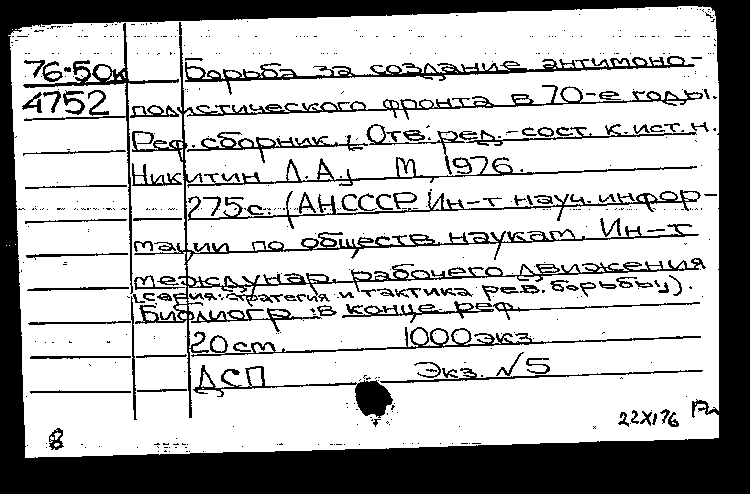 76-50к Борьба за создание антимоно-
4752 полистического фронта в 70-е годы.
Реф. сборник. [ Отв. ред.-сост. к.ист.н.
Никитин Л.А.] М, 1976.
275с. (АН СССР. Ин-т науч. инфор-
мации по обществ. наукам. Ин-т
междунар. рабочего движения
(серия: Стратегия и тактика рев. борьбы).
Библиогр.: в конце реф.
20 ст. 1000 экз
ДСП Экз. №5
22 XI 76
8